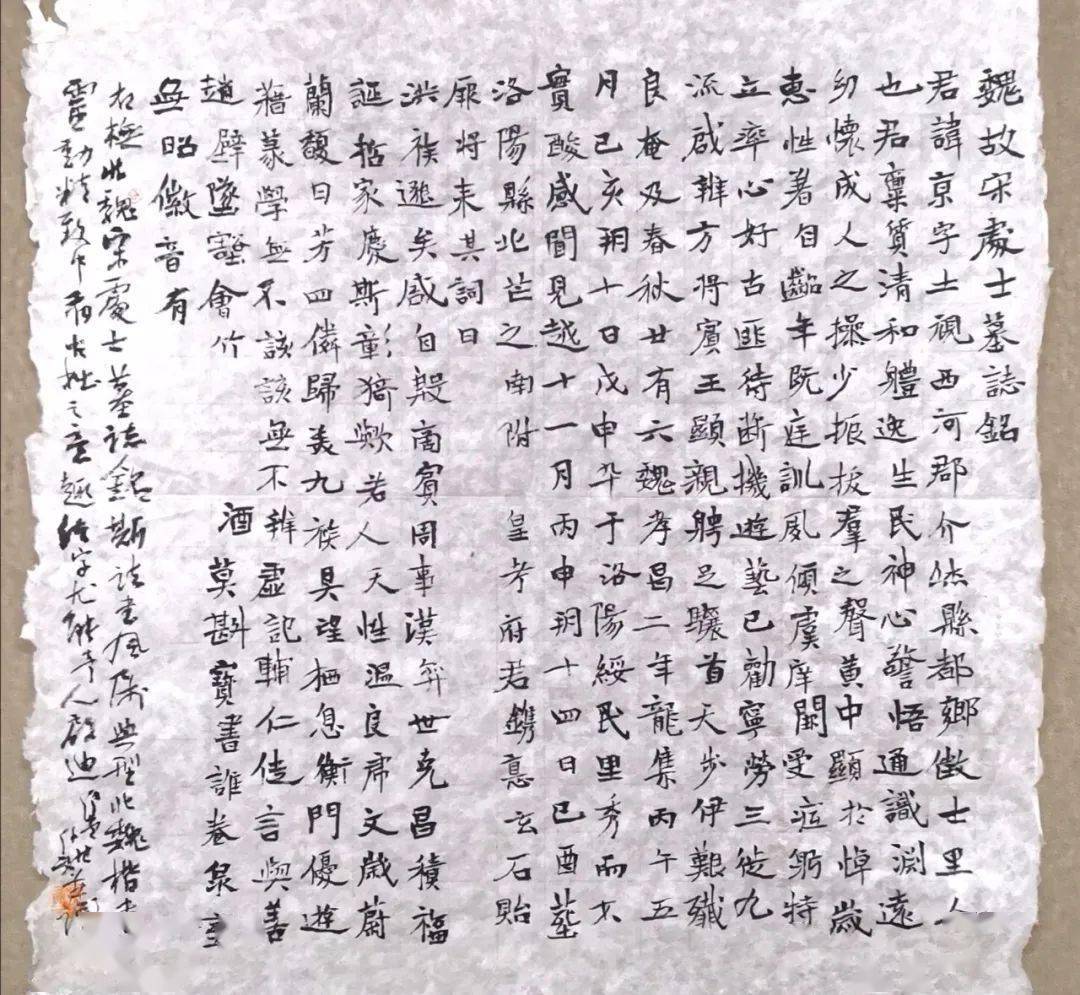 魏故宋處士墓誌銘
君諱京字士視西河郡介休縣都鄉徵士里人
也君稟質清和體逸生民神心警悟通識淵遠
幼懷成人之操少振拔羣之聲黃中顯於悼歲
惠性著自齠年既庭訓夙傾虞庠闢受莅躬特
立率心好古匪待斷機遊藝已勸寧勞三徙九
流咸辨方將賓王顯親騁足驤首天步伊艱殲
良奄及春秋廿有六魏孝昌二年龍集丙午五
月己亥朔十日戊申卒于洛陽綏民里秀而不
實酸感聞見越十一月丙申朔十四日己酉葬
洛陽縣北芒之南附 皇考府君鐫惪玄石貽
厥將来其詞曰
洪族遐矣咸自殷商賓周事漢弈世克昌積福
誕喆家慶斯彰猗歟若人天性温良席文歲蔚
蘭馥日芳四隣歸美九族具望栖息衡門優遊
牆篆學無不該該無不辨虛記輔仁佳言與善
趙壁墜 會竹 酒莫斟寶書誰卷泉
無昭徽音有
右橅北魏宋處士墓誌銘斯誌書風屬典型北魏楷書
靈動精致中有古拙之意趣 字尤能予人啟迪